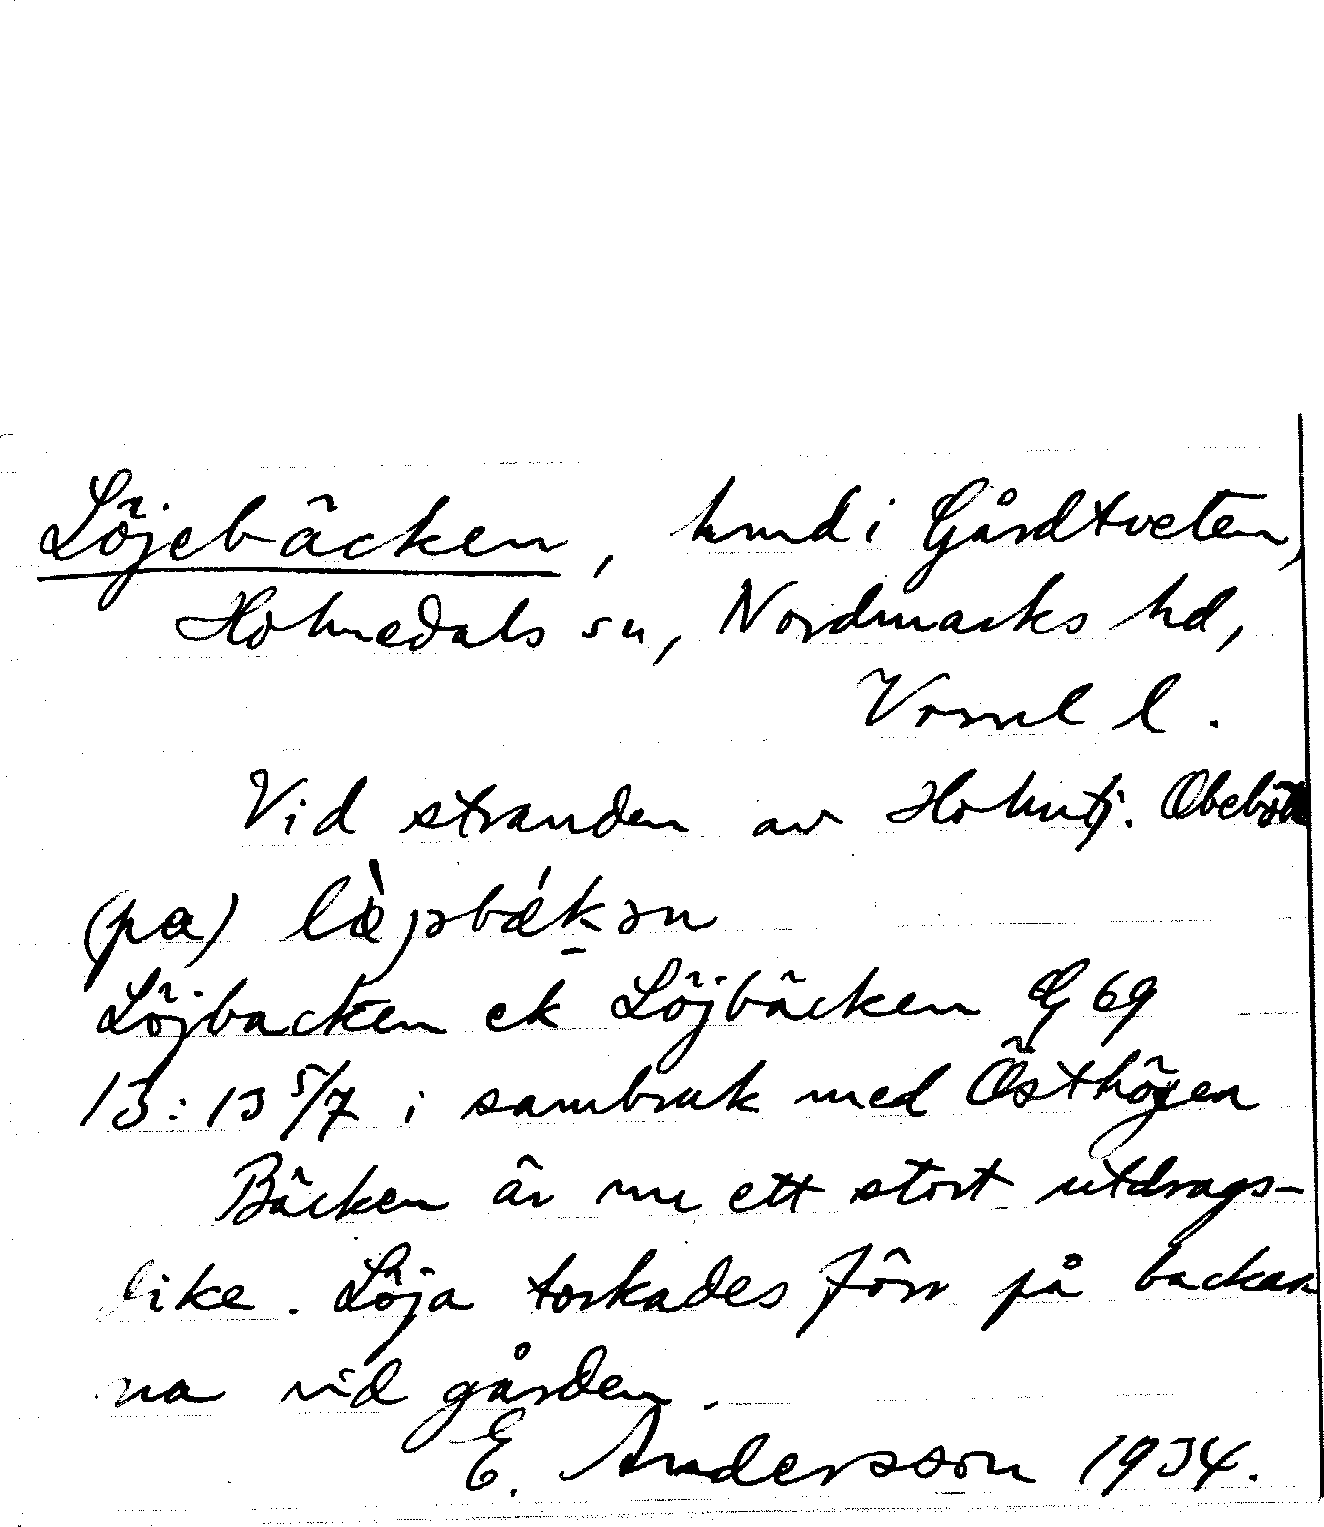 Löjebäcken, hmd i Gårdtveten,
Holmedals sn, Nordmarks hd,
Vrml l.
Vid stranden av Holmtj. Obebott
(pa) læ̀jəbǽkən
Löjbacken ek Löjbäcken G 69
13:13 5/7 i sambruk med Östhögen
Bäcken är nu ett stort utdrags-
dike. Löja torkades förr på backar
na vid gården.
E. Andersson 1934.